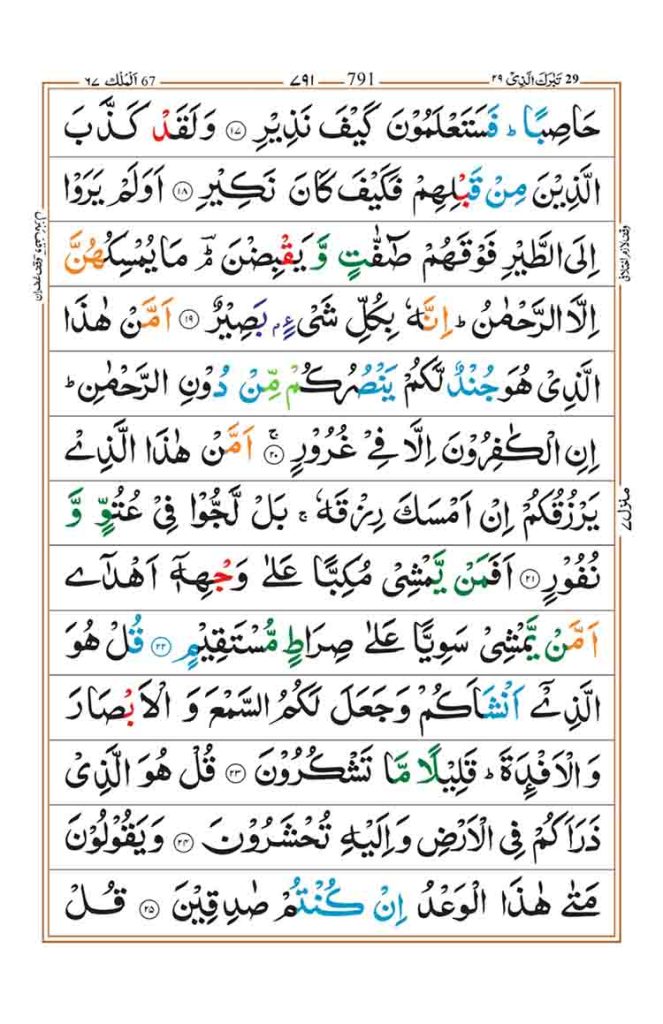 تَبٰرَكَ الَّذِىْ ٢٩ 29
٧٩١ 791
67 اَلْمُلْك ٦٧
حَاصِبًا ؕ فَسَتَعْلَمُوْنَ كَيْفَ نَذِيْرِ ۝١٧ وَلَقَدْ كَذَّبَ
الَّذِيْنَ مِنْ قَبْلِهِمْ فَكَيْفَ كَانَ نَكِيْرِ ۝١٨ اَوَلَمْ يَرَوْا
اِلَى الطَّيْرِ فَوْقَهُمْ صٰٓفّٰتٍ وَّ يَقْبِضْنَ ؔۘؕ مَا يُمْسِكُهُنَّ
اِلَّا الرَّحْمٰنُ ؕ اِنَّهٗ بِكُلِّ شَىْءٍۭ بَصِيْرٌ ۝١٩ اَمَّنْ هٰذَا
الَّذِىْ هُوَ جُنْدٌ لَّكُمْ يَنْصُرُكُمْ مِّنْ دُوْنِ الرَّحْمٰنِ ؕ
اِنِ الْكٰفِرُوْنَ اِلَّا فِىْ غُرُوْرٍ ۚ‏ ۝٢٠ اَمَّنْ هٰذَا الَّذِىْ
يَرْزُقُكُمْ اِنْ اَمْسَكَ رِزْقَهٗ ۚ بَلْ لَّجُّوْا فِىْ عُتُوٍّ وَّ
نُفُوْرٍ ۝٢١ اَفَمَنْ يَّمْشِىْ مُكِبًّا عَلٰى وَجْهِهٖۤ اَهْدٰٓى
اَمَّنْ يَّمْشِىْ سَوِيًّا عَلٰى صِرَاطٍ مُّسْتَقِيْمٍ ۝٢٢ قُلْ هُوَ
الَّذِىْۤ اَنْشَاَكُمْ وَجَعَلَ لَكُمُ السَّمْعَ وَ الْاَبْصَارَ
وَالْاَفْـِٕدَةَ ؕ قَلِيْلًا مَّا تَشْكُرُوْنَ ۝٢٣ قُلْ هُوَ الَّذِىْ
ذَرَاَكُمْ فِى الْاَرْضِ وَاِلَيْهِ تُحْشَرُوْنَ ۝٢٤ وَيَقُوْلُوْنَ
مَتٰى هٰذَا الْوَعْدُ اِنْ كُنْتُمْ صٰدِقِيْنَ ۝٢٥ قُلْ
منزل ٧